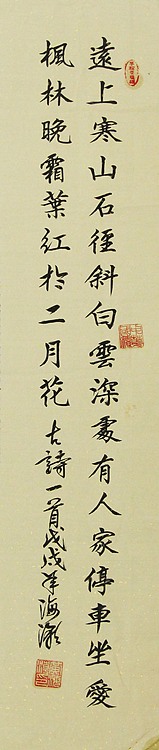 遠上寒山石徑斜白雲深處有人家停車坐愛
楓林晚霜葉紅於二月花古詩一首戊戌年海漱